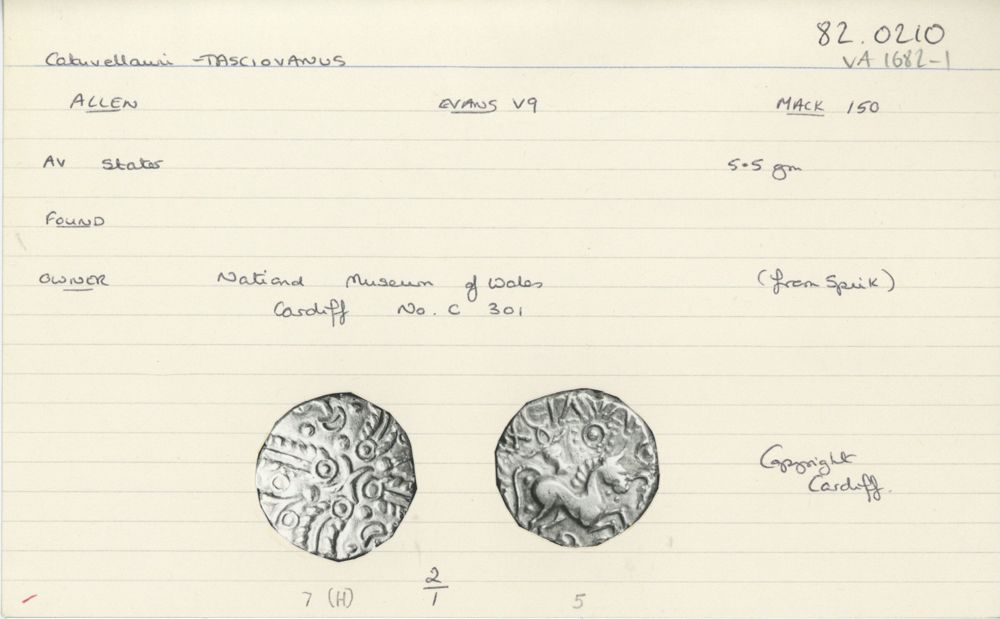 82.0210
Catuvellauni - TASCIOVANUS
VA 1682-1
ALLEN EVANS V9 MACK 150
AV Stater 5.5 gm
FOUND
OWNER National Museum of Wales (from Spink)
Cardiff No. C 301
Copyright
Cardiff.
7 (H) 2/1 5